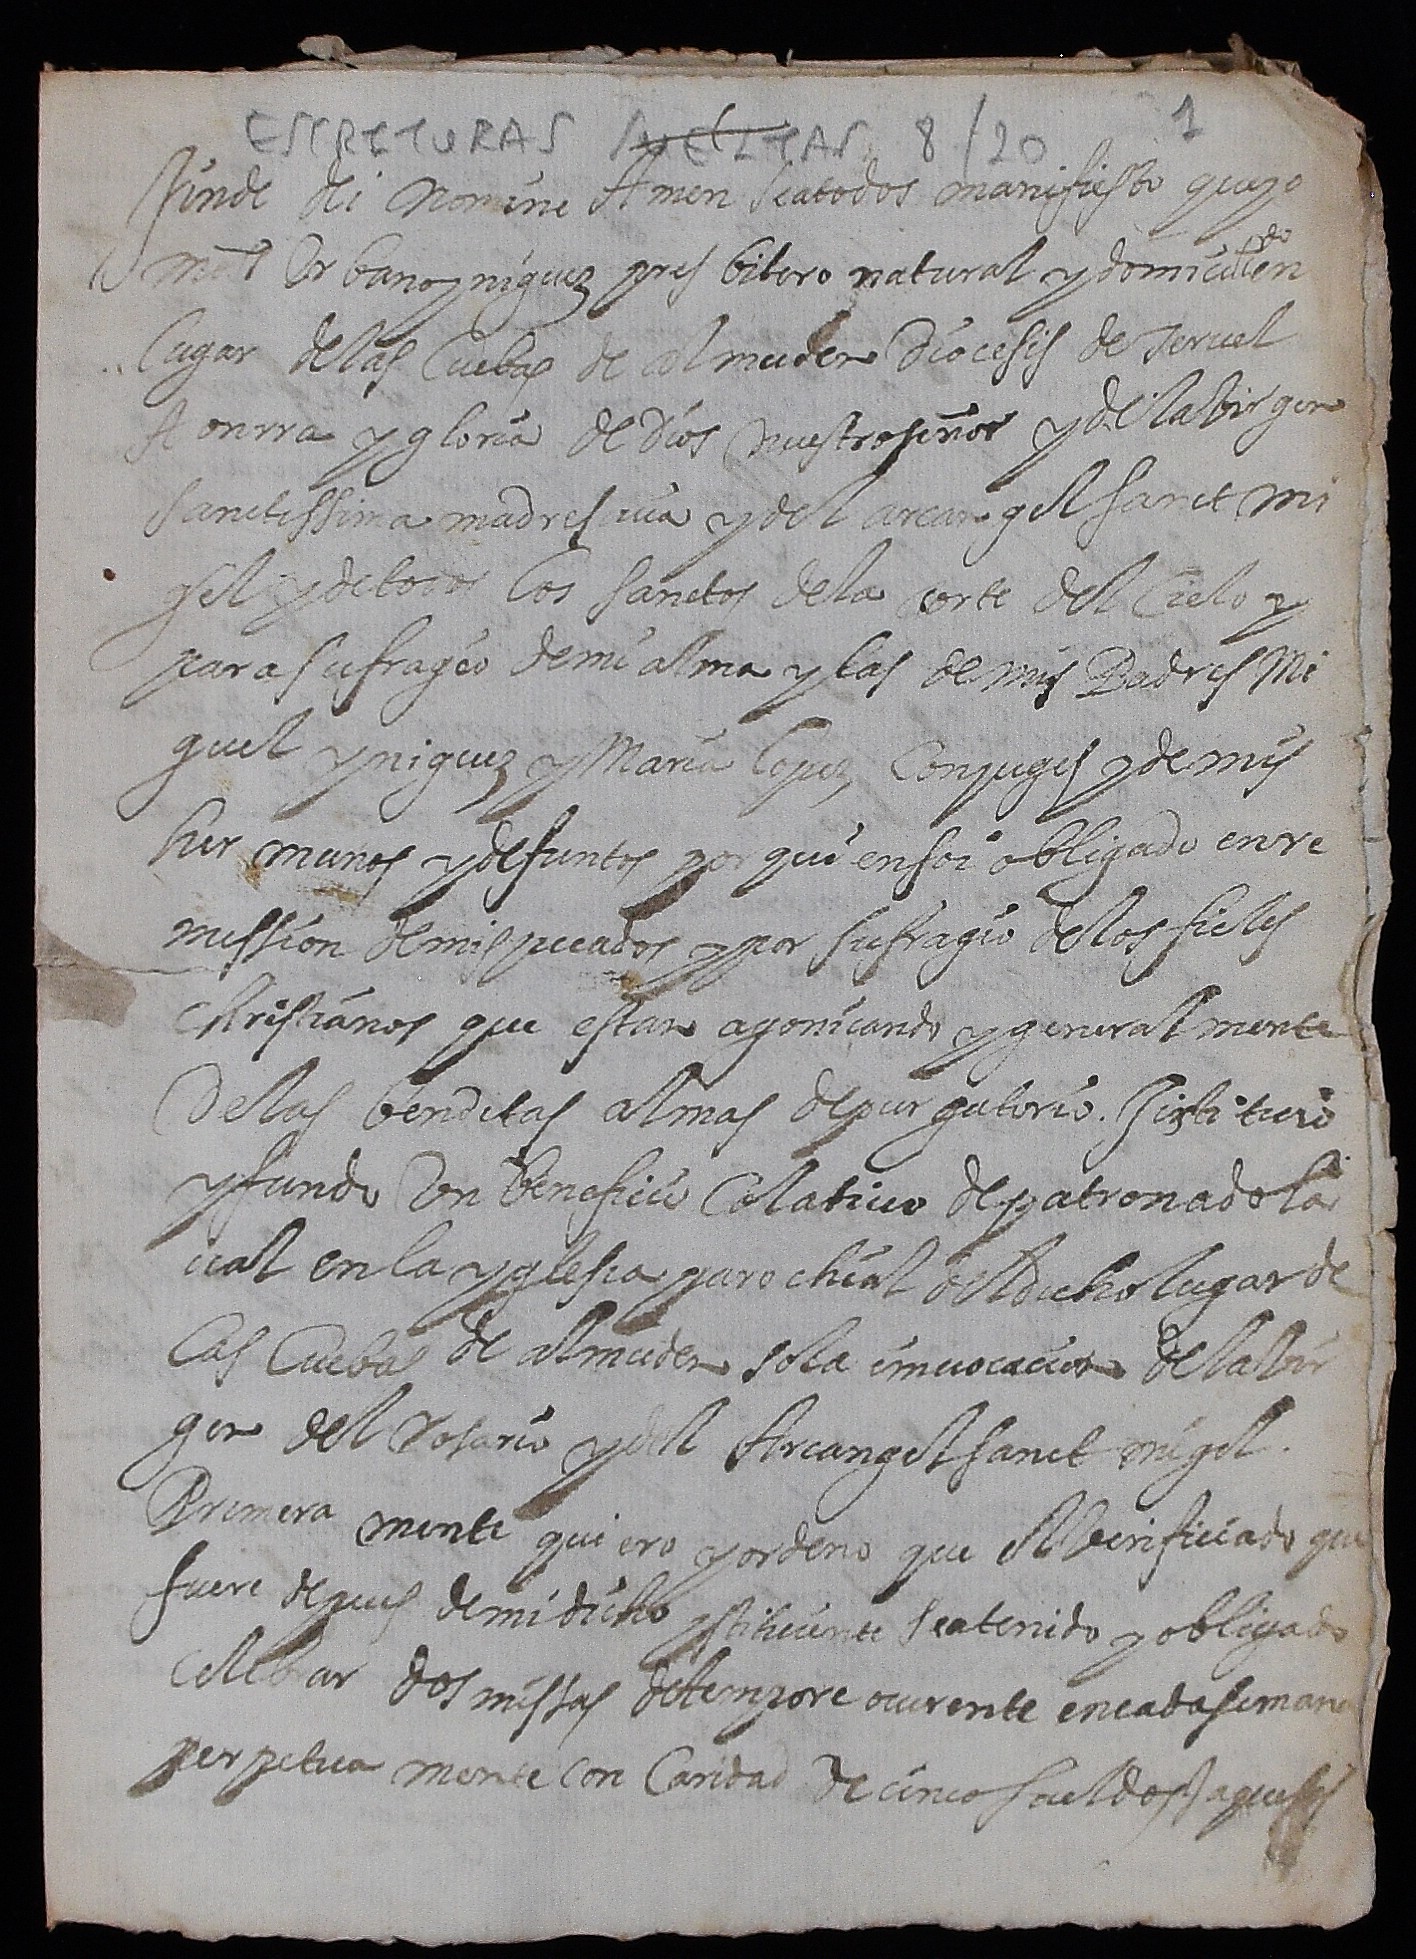 ESCRITURAS SUELTAS 8/20 1
Jn dei nomine Amen Seatodos manifiesto queyo
Urbano yniguez presbitero natural y domiciliado en
lugar delas Cuebas de Almuden Diocesis de Teruel
A onrra y gloria de Dios nuestro señor y dela Virgen
sanctissima madre suia y del arcangel Sanct mi
gel y de todos los sanctos dela corte del Cielo y
para sufragio de mi alma y las de mis Padres Mi
guel yniguez y Maria lopez Conjuges y de mis
hermanos y defuntos por quien soi obligado en re
mission de mis peccados y por sufragio de los fieles
christianos que estan agonicando y generalmente
De las benditas almas de purgatorio. Jnstituio
y fundo Vn beneficio Colativo de patronado lai
cal en la yglesia parochial del dicho lugar de
las Cuebas de almuden so la imvocacion dela Vir
gen del rosario y del Arcangel sanct migel.
Primeramente quiero y ordeno que el beneficiado que
fuere depues de mi dicho ystituiente sea tenido y obligado
celebrar dos missas de tempore ocurente en cada semana
perpetuamente con Caridad de cinco sueldos Jaqueses